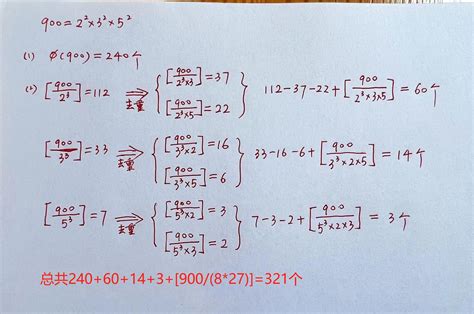 900=2²×3²×5²
(1) φ(900)=240个
(2) [900/2³]=112 ⇒去重 { [900/2³×3]=37 [900/2³×5]=22 } 112-37-22+[900/2³×3×5]=60个
[900/3³]=33 ⇒去重 { [900/3³×2]=16 [900/3³×5]=6 } 33-16-6+[900/3³×2×5]=14个
[900/5³]=7 ⇒去重 { [900/5³×2]=3 [900/5³×3]=2 } 7-3-2+[900/5³×2×3]=3个
总共240+60+14+3+[900/(8*27)]=321个